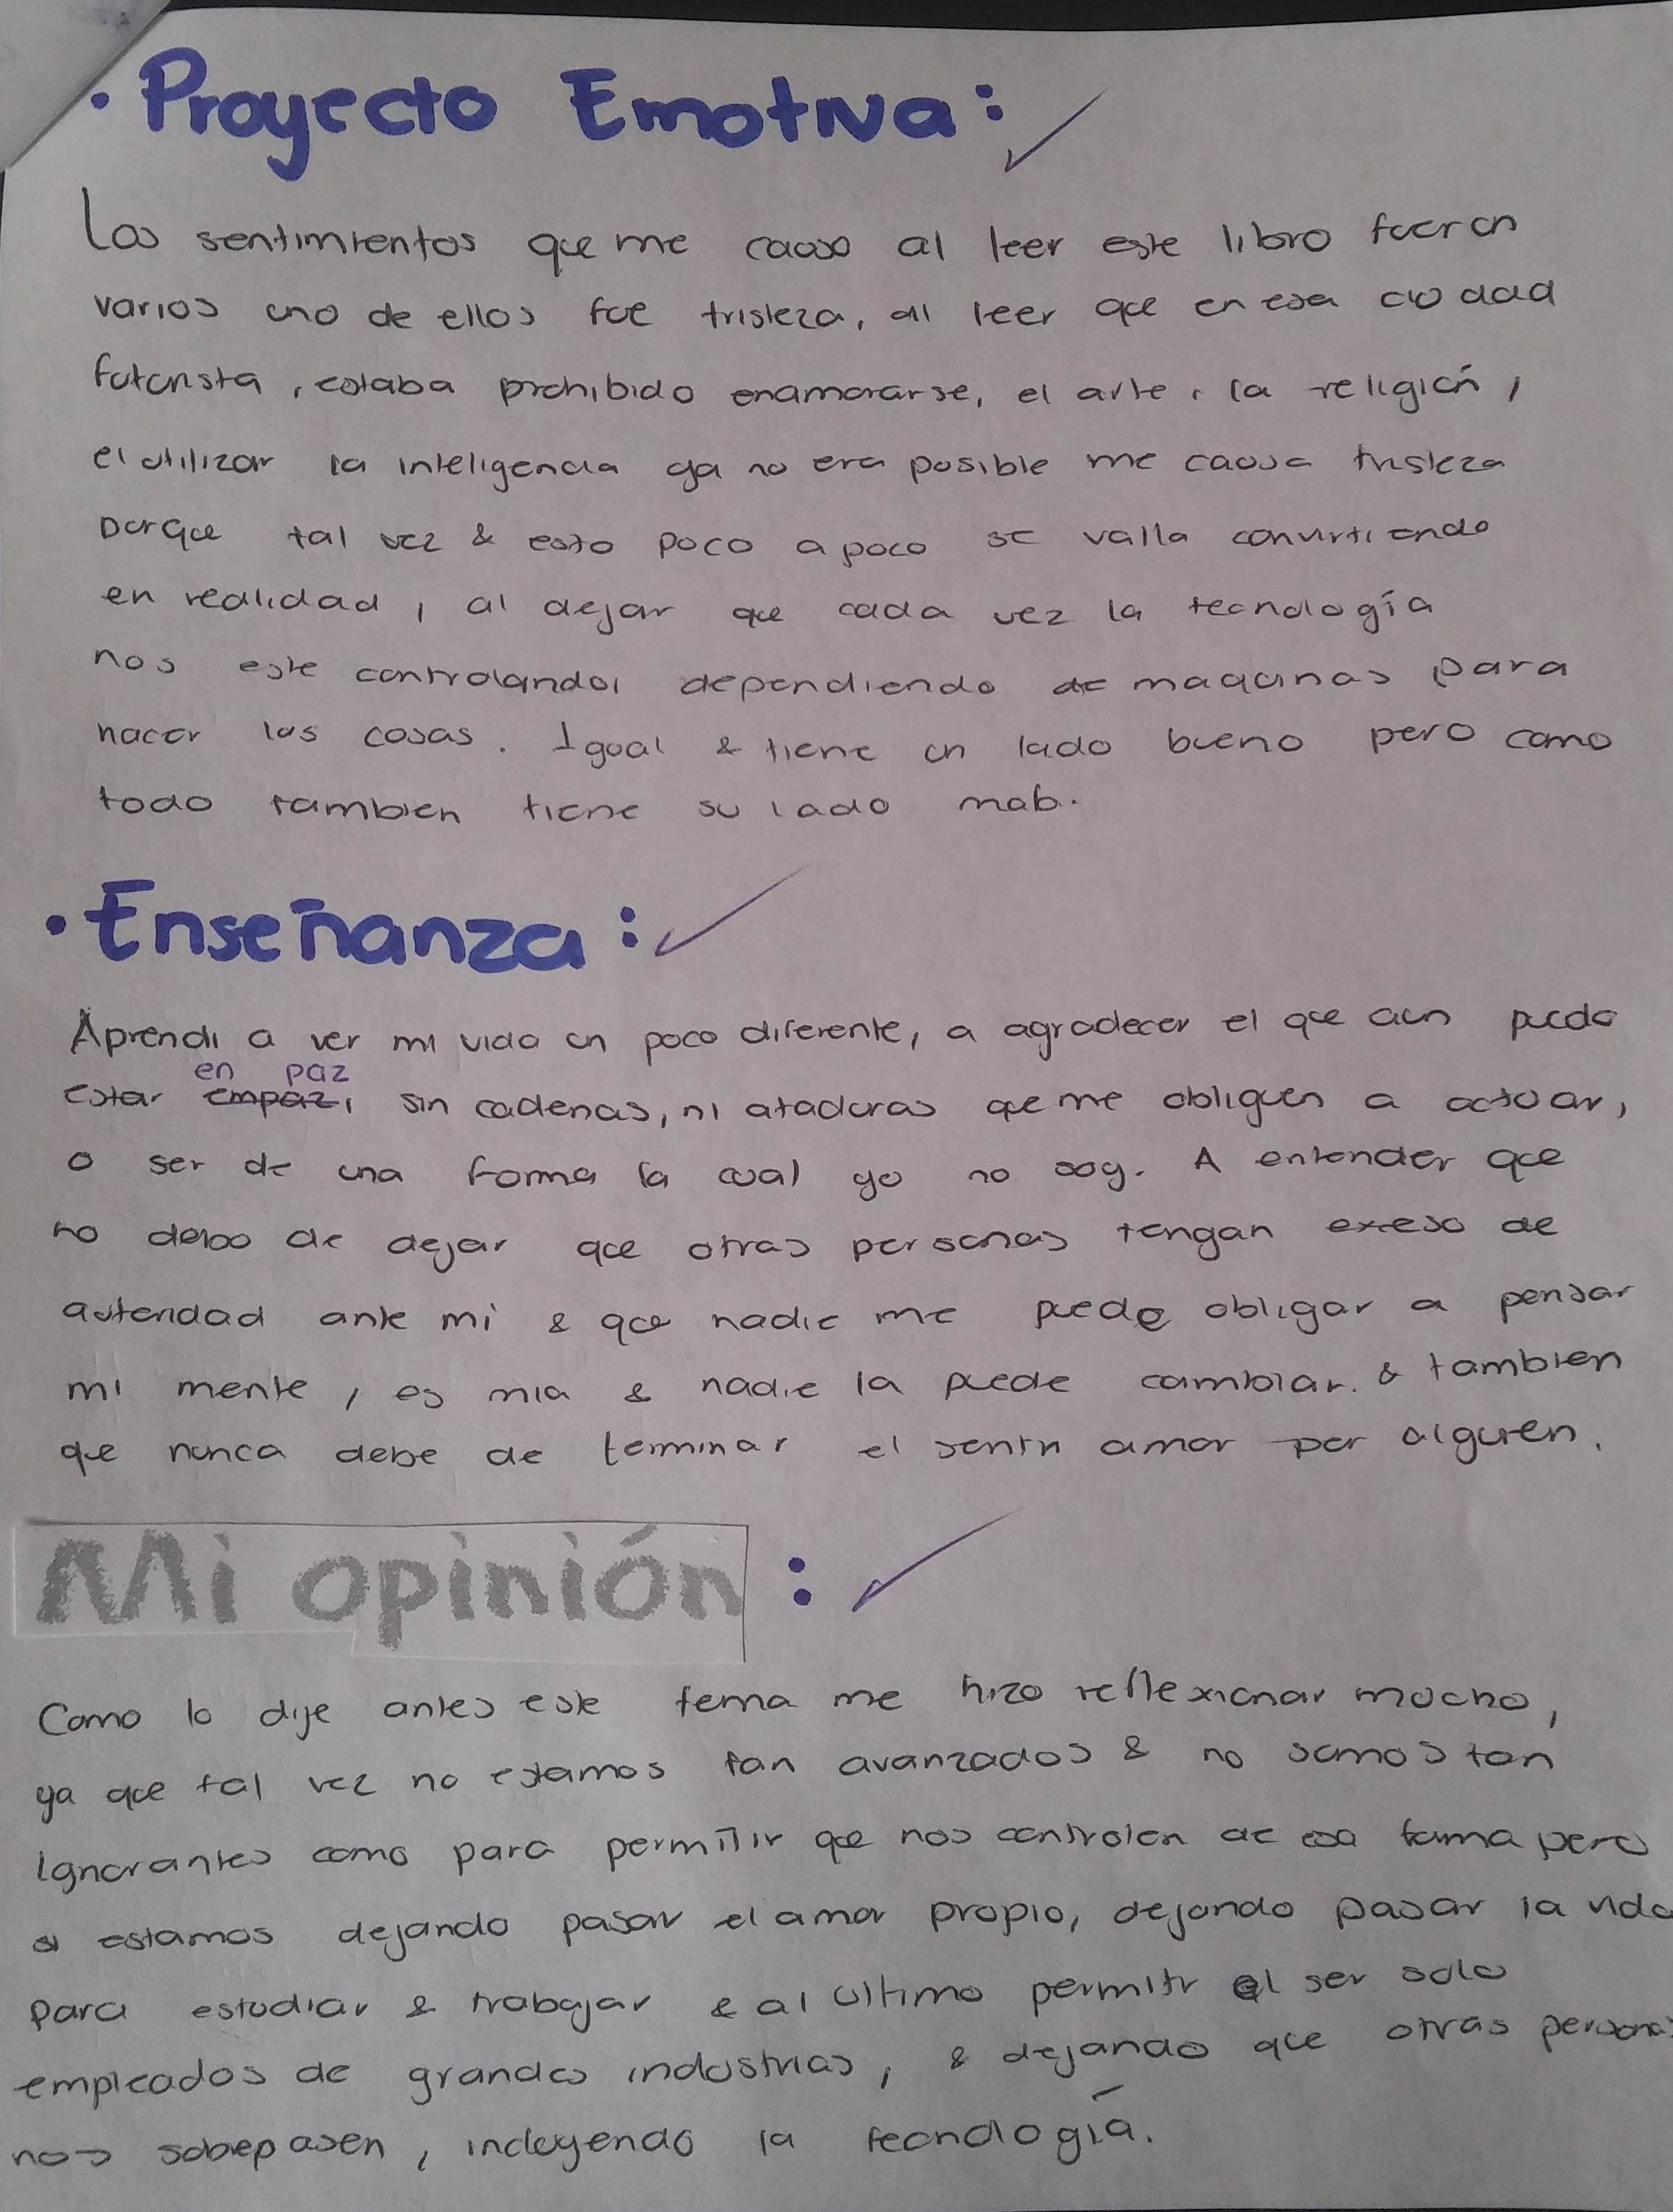 · Proyecto Emotiva:
Los sentimientos que me causo al leer este libro fueron
varios uno de ellos fue tristeza, al leer que en esa ciudad
futurista, estaba prohibido enamorarse, el arte, la religión,
el utilizar la inteligencia ya no era posible me causa tristeza
porque tal vez & esto poco a poco se valla convirtiendo
en realidad, al dejar que cada vez la tecnología
nos este controlando, dependiendo de maquinas para
hacer las cosas. Igual & tiene un lado bueno pero como
todo tambien tiene su lado malo.
· Enseñanza:
Aprendi a ver mi vida un poco diferente, a agradecer el que aun puedo
en paz
estar empaz, sin cadenas, ni ataduras que me obliguen a actuar,
o ser de una forma la cual yo no soy. A entender que
no debo de dejar que otras personas tengan exceso de
autoridad ante mi & que nadie me puede obligar a pensar
mi mente, es mia & nadie la puede cambiar. & tambien
que nunca debe de terminar el sentir amor por alguien.
Mi opinión:
Como lo dije antes este tema me hizo reflexionar mucho,
ya que tal vez no estamos tan avanzados & no somos tan
ignorantes como para permitir que nos controlen de esa forma pero
si estamos dejando pasar el amor propio, dejando pasar la vida
para estudiar & trabajar & al ultimo permitir el ser solo
empleados de grandes industrias, & dejando que otras personas
nos sobrepasen, incluyendo la tecnología.